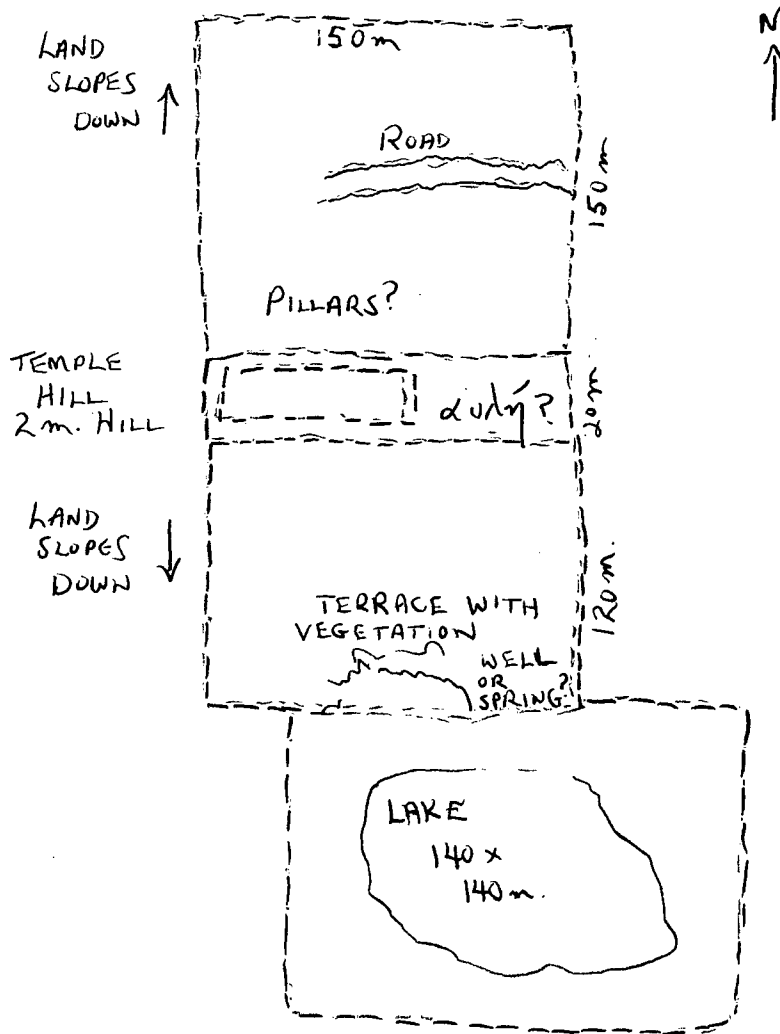 150m
N
LAND
SLOPES
DOWN
ROAD
150m
PILLARS?
TEMPLE
HILL
2m. HILL
αυλή?
20m
LAND
SLOPES
DOWN
120m.
TERRACE WITH
VEGETATION
WELL
OR
SPRING?
LAKE
140 x
140m.